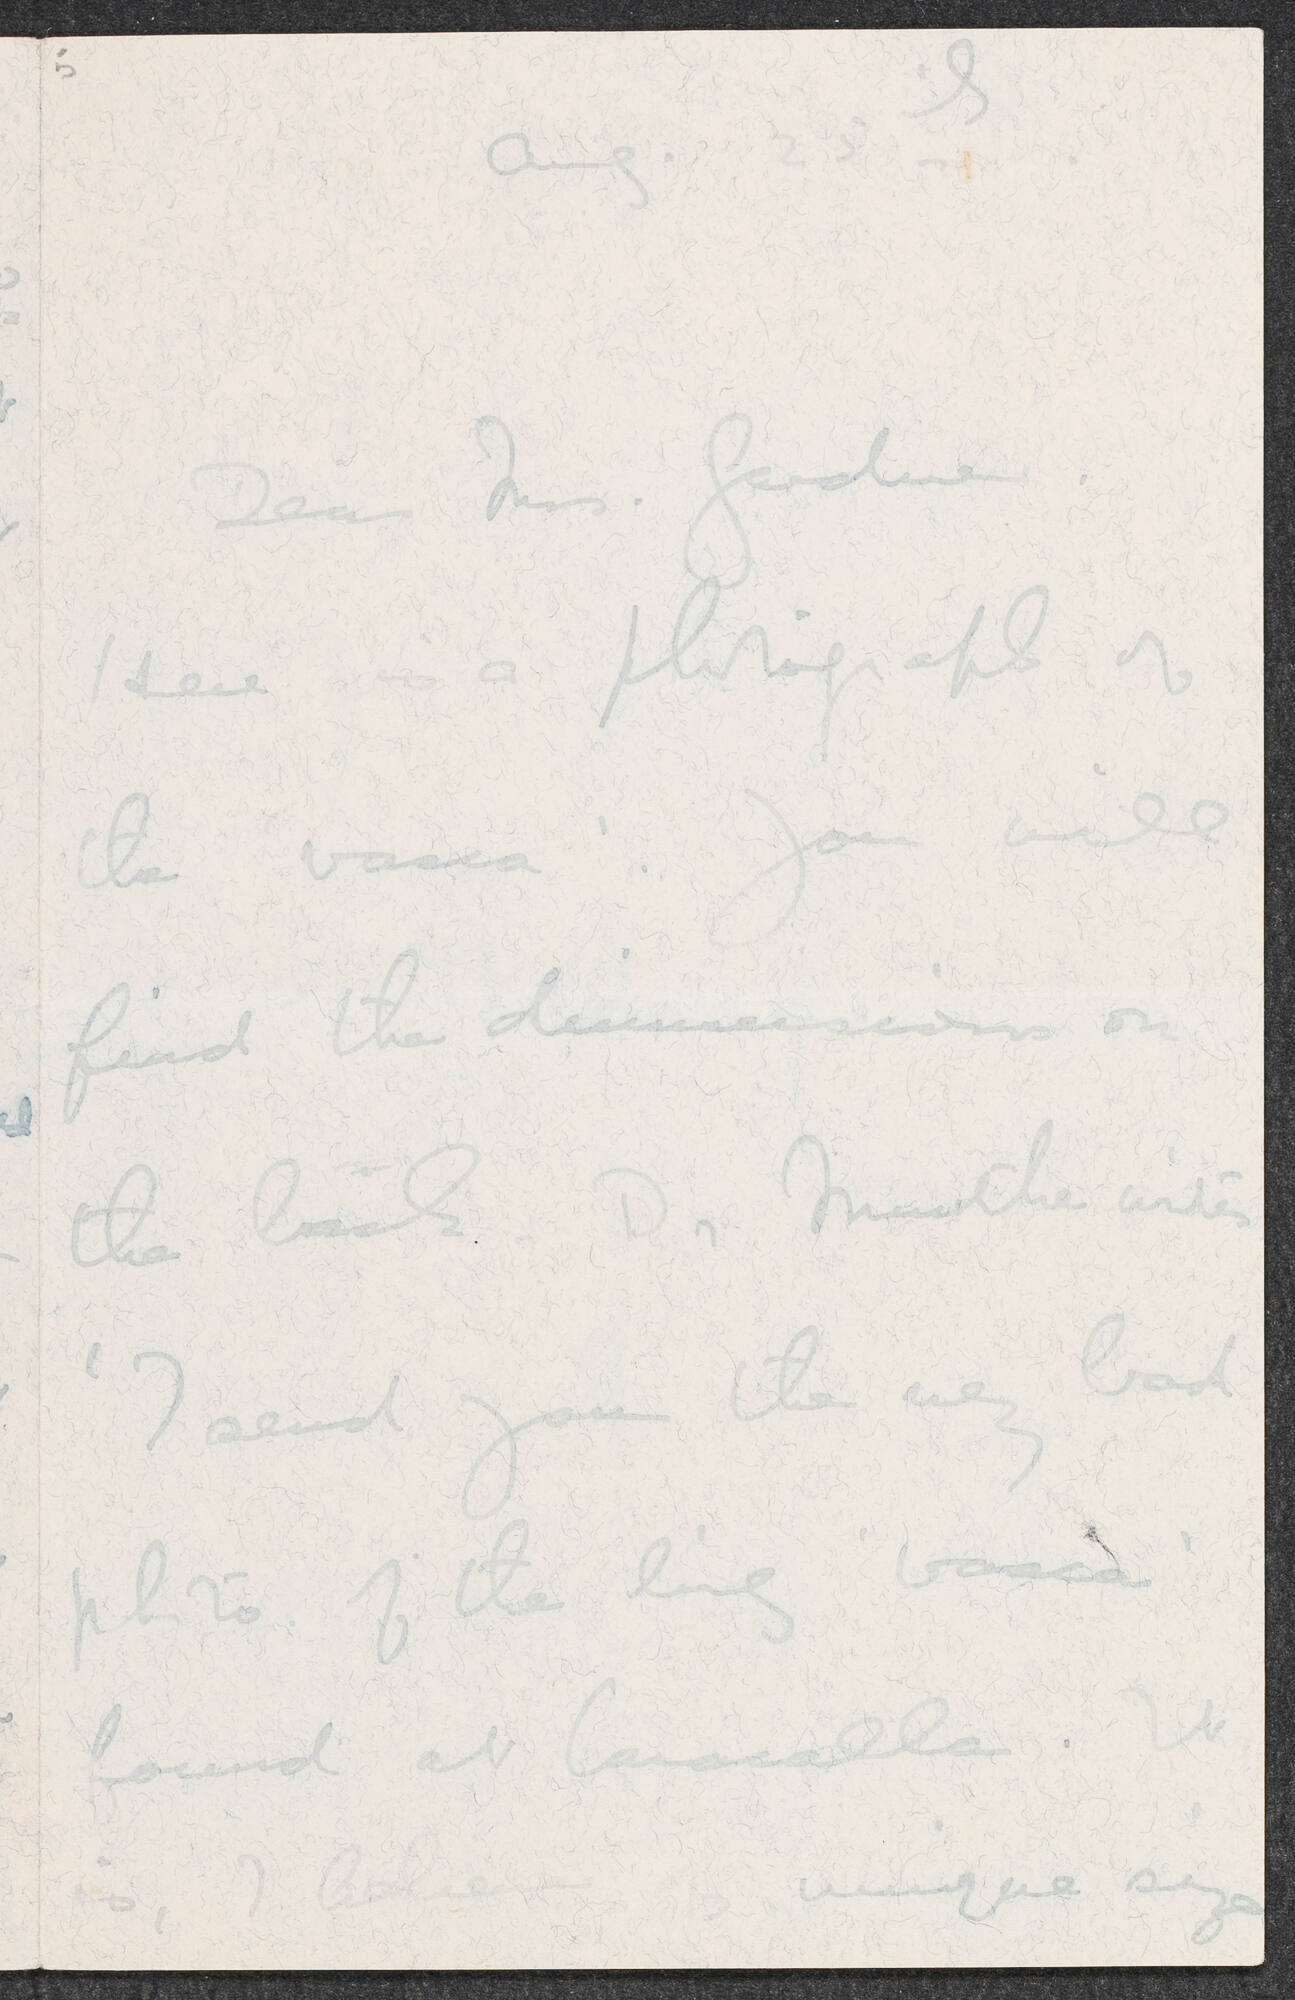 5
Aug. 25
Dear Mrs. Gardner.
Here is a photograph of
the 'vasca'. You will
find the dimensions on
the back. Dr Munthe writes
'I send you the very bad
photo. of the big 'vasca'
found at Caracalla. It
is, I believe unique size